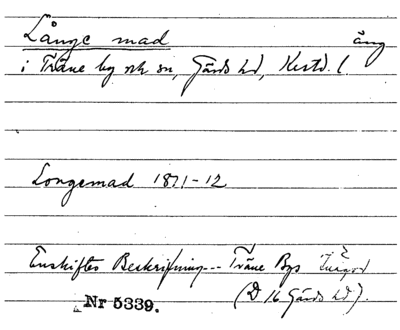 Långe mad äng
i Träne by ock sn, Gärds hd, Kristd. l
Longemad 1811-12
Enskiftes Beskrifning... Träne Bys
(D 16 Gärds hd).
Nr 5339.